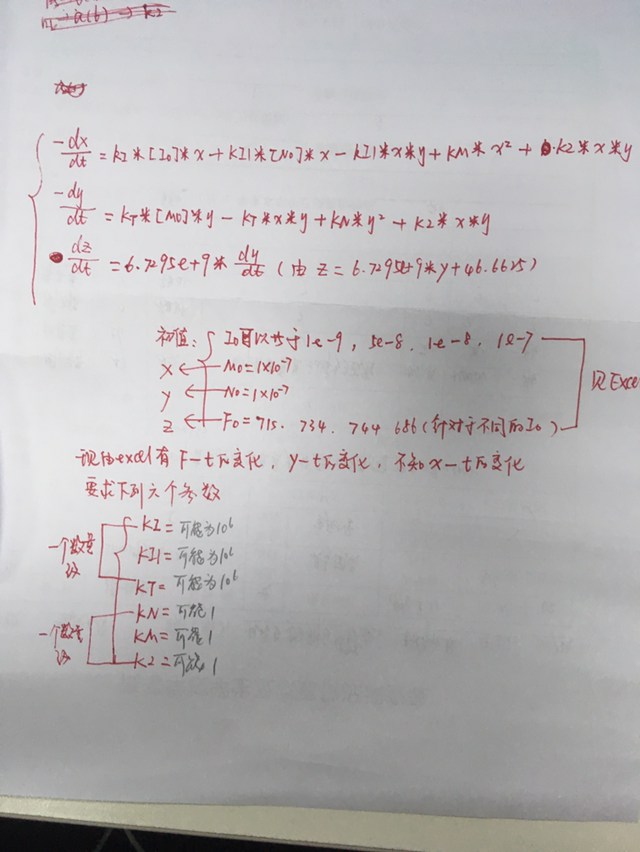 a(b) → k2
-dx/dt = kI * [I0] * x + kI1 * [N0] * x - kI1 * x * y + kM * x² + k2 * x * y
-dy/dt = kT * [M0] * y - kT * x * y + kN * y² + k2 * x * y
dz/dt = 6.7295e+9 * dy/dt (由 z = 6.7295e+9 * y + 46.6625)
初值: I0可以等于1e-9, 5e-8, 1e-8, 1e-7
x ← M0 = 1×10⁻⁷
y ← N0 = 1×10⁻⁷
z ← F0 = 715. 734. 744 686 (针对于不同的I0)
见Excel
现由excel有 F-t的变化, y-t的变化, 不知x-t的变化
要求下列六个参数
kI = 可能为10⁶
kI1 = 可能为10⁶
kT = 可能为10⁶
一个数量级
kN = 可能1
kM = 可能1
k2 = 可能1
一个数量级